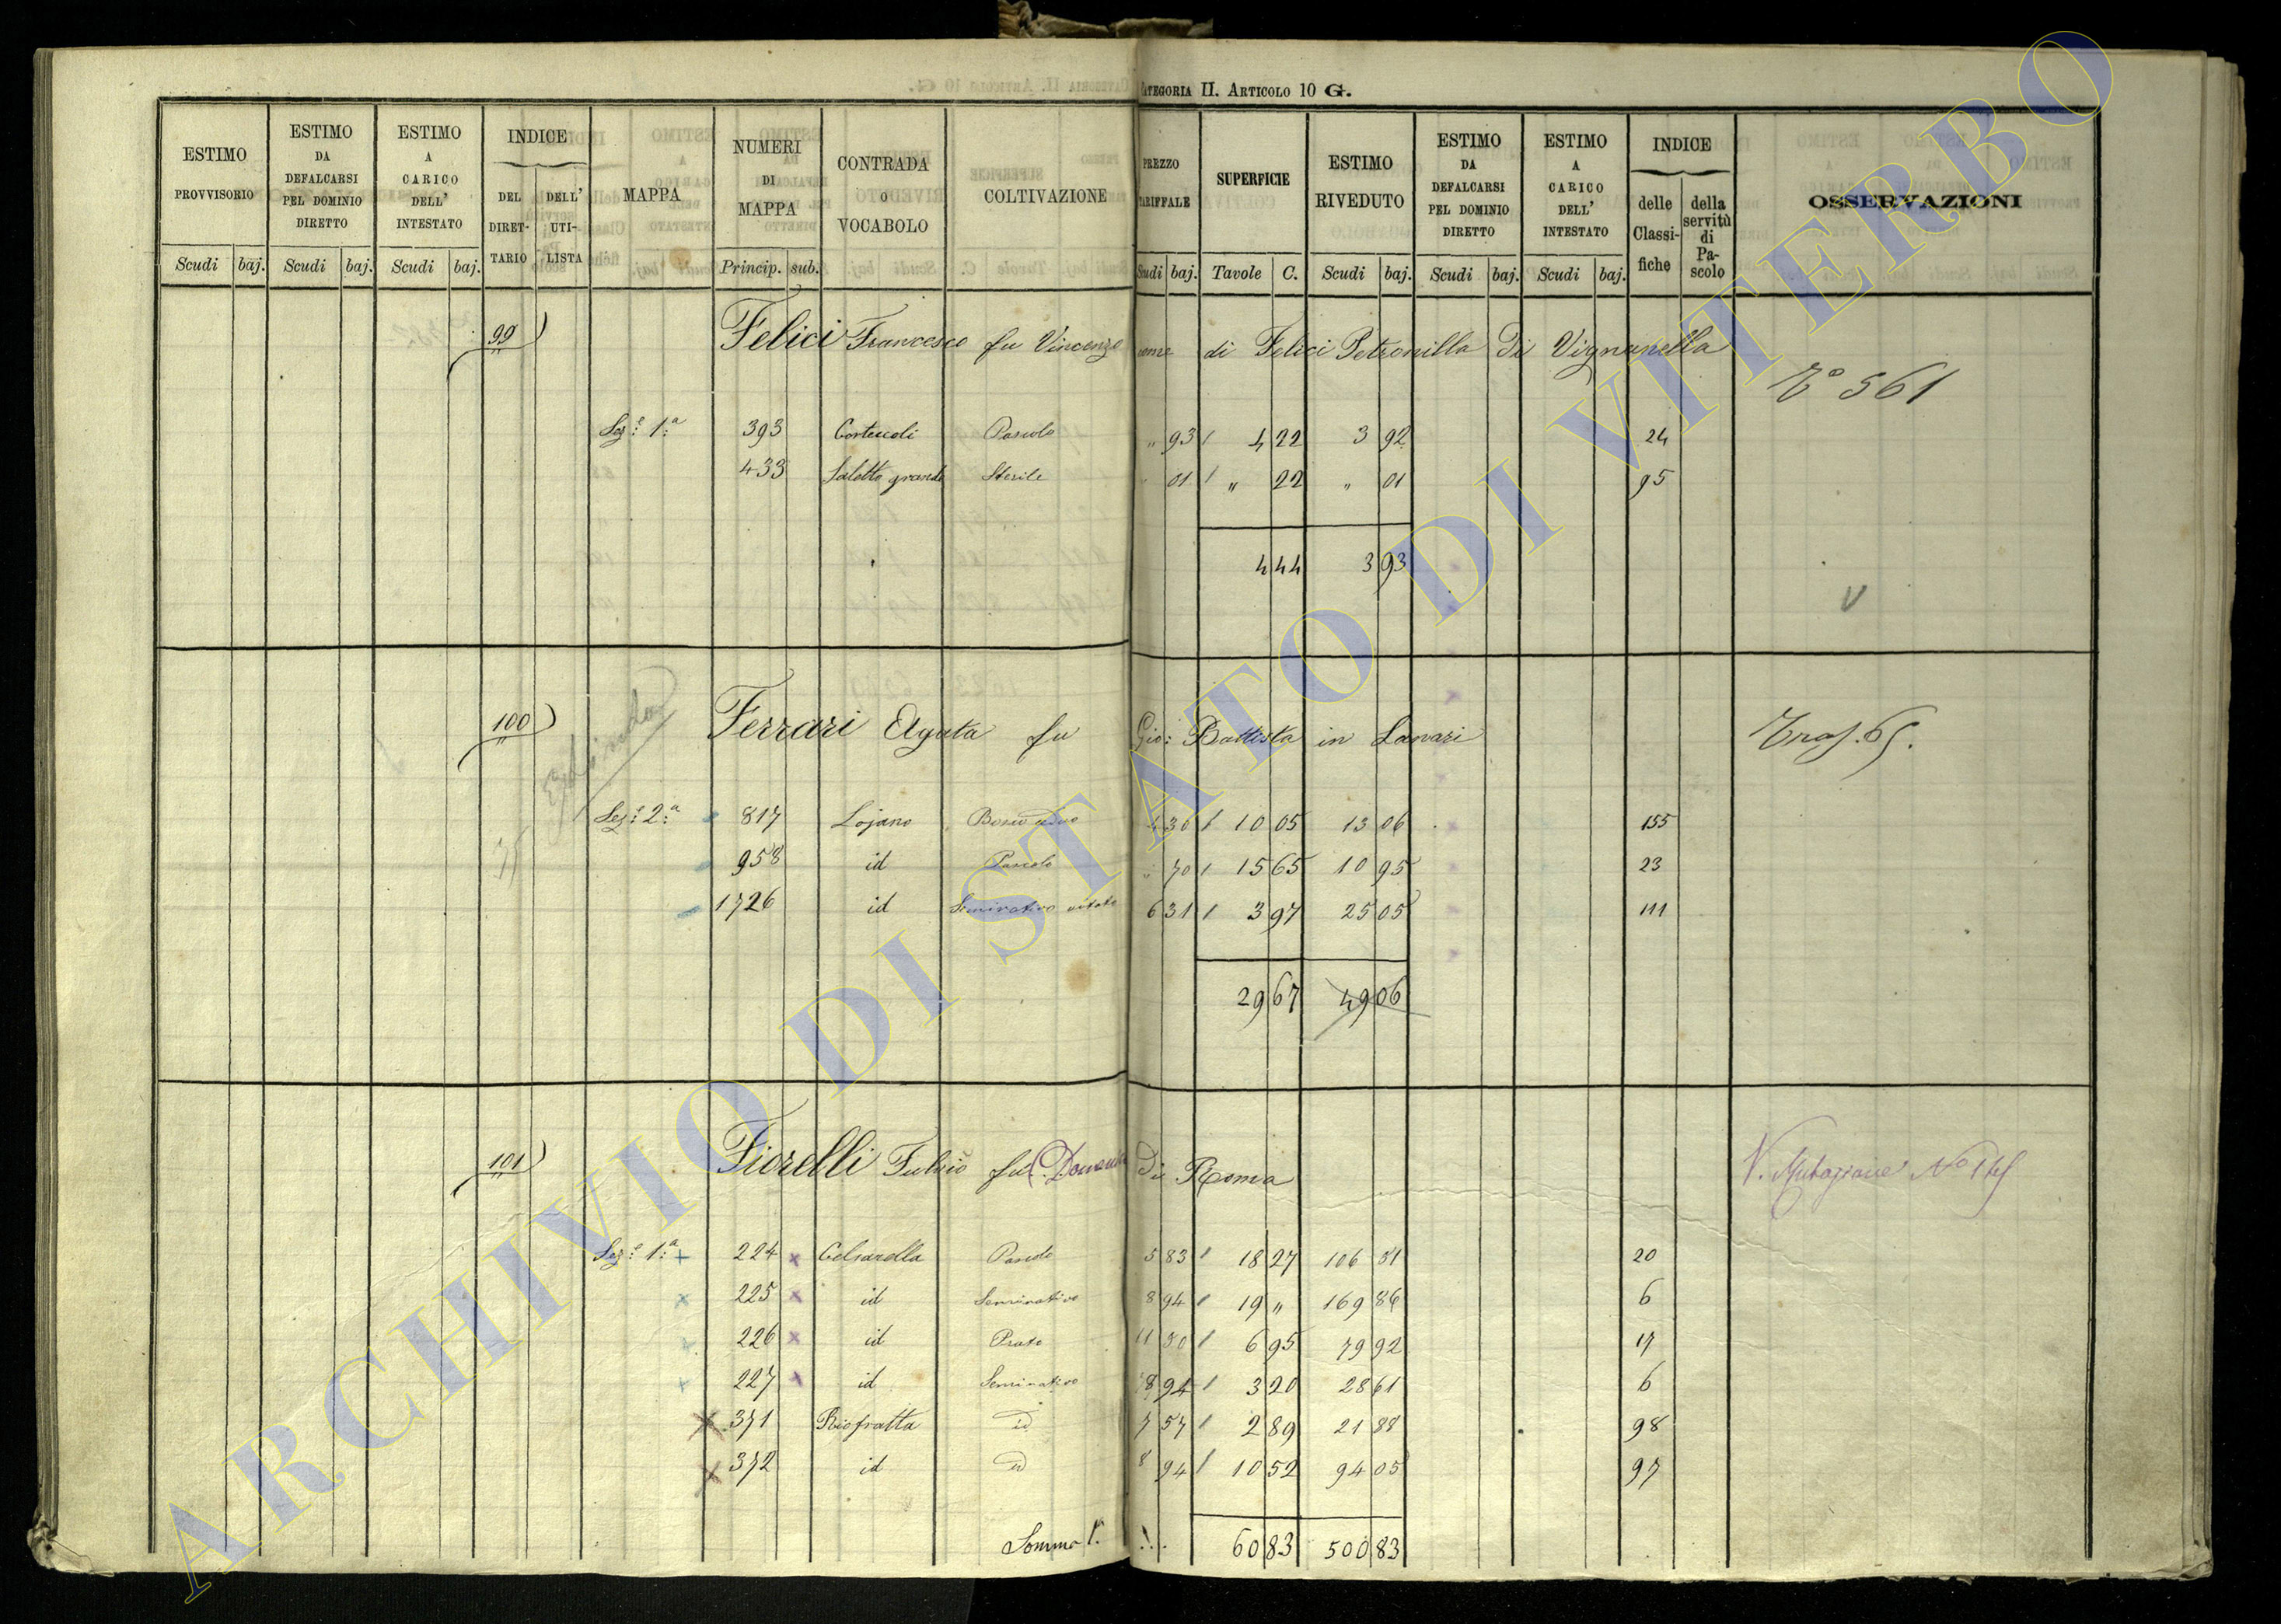 CATEGORIA II. ARTICOLO 10 G.
ESTIMO PROVVISORIO
ESTIMO DA DEFALCARSI PEL DOMINIO DIRETTO
ESTIMO A CARICO DELL' INTESTATO
INDICE
DEL DIRET-TARIO
DELL' UTI-LISTA
MAPPA
NUMERI DI MAPPA
CONTRADA O VOCABOLO
COLTIVAZIONE
PREZZO TARIFFALE
SUPERFICIE
ESTIMO RIVEDUTO
ESTIMO DA DEFALCARSI PEL DOMINIO DIRETTO
ESTIMO A CARICO DELL' INTESTATO
INDICE
delle Classi-fiche
della servitù di Pa-scolo
OSSERVAZIONI
Scudi baj. Scudi baj. Scudi baj. Princip. sub. Scudi baj. Tavole C. Scudi baj. Scudi baj. Scudi baj.
99) Felici Francesco fu Vincenzo di Felici Petronilla Di Vignanella
N° 561
Sez.e 1.a 393 Pascolo " 93 4 22 3 92 24
433 Saletto grande Sterile " 01 " 22 " 01 95
4 44 3 93
V
100) Ferrari Agata fu Gio: Battista in Lanari
Tras. 65.
Sez.e 2.a 817 Lojano Bosco ceduo 1 30 10 05 13 06 155
958 id Pascolo " 70 15 65 10 95 23
1726 id Seminativo vitato 6 31 3 97 25 05 111
29 67 49 06
101) Fiorelli Fulvio fu Di Roma
Sez.e 1.a 224 Celsarella Pascolo 5 83 18 27 106 51 20
225 id Seminativo 8 94 19 " 169 86 6
226 id Prato 11 50 6 95 79 92 17
227 id Seminativo 8 94 3 20 28 61 6
371 Riofratta id 7 57 2 89 21 88 98
372 id id 8 94 10 52 94 05 97
Somma 60 83 500 83
ARCHIVIO DI STATO DI VITERBO